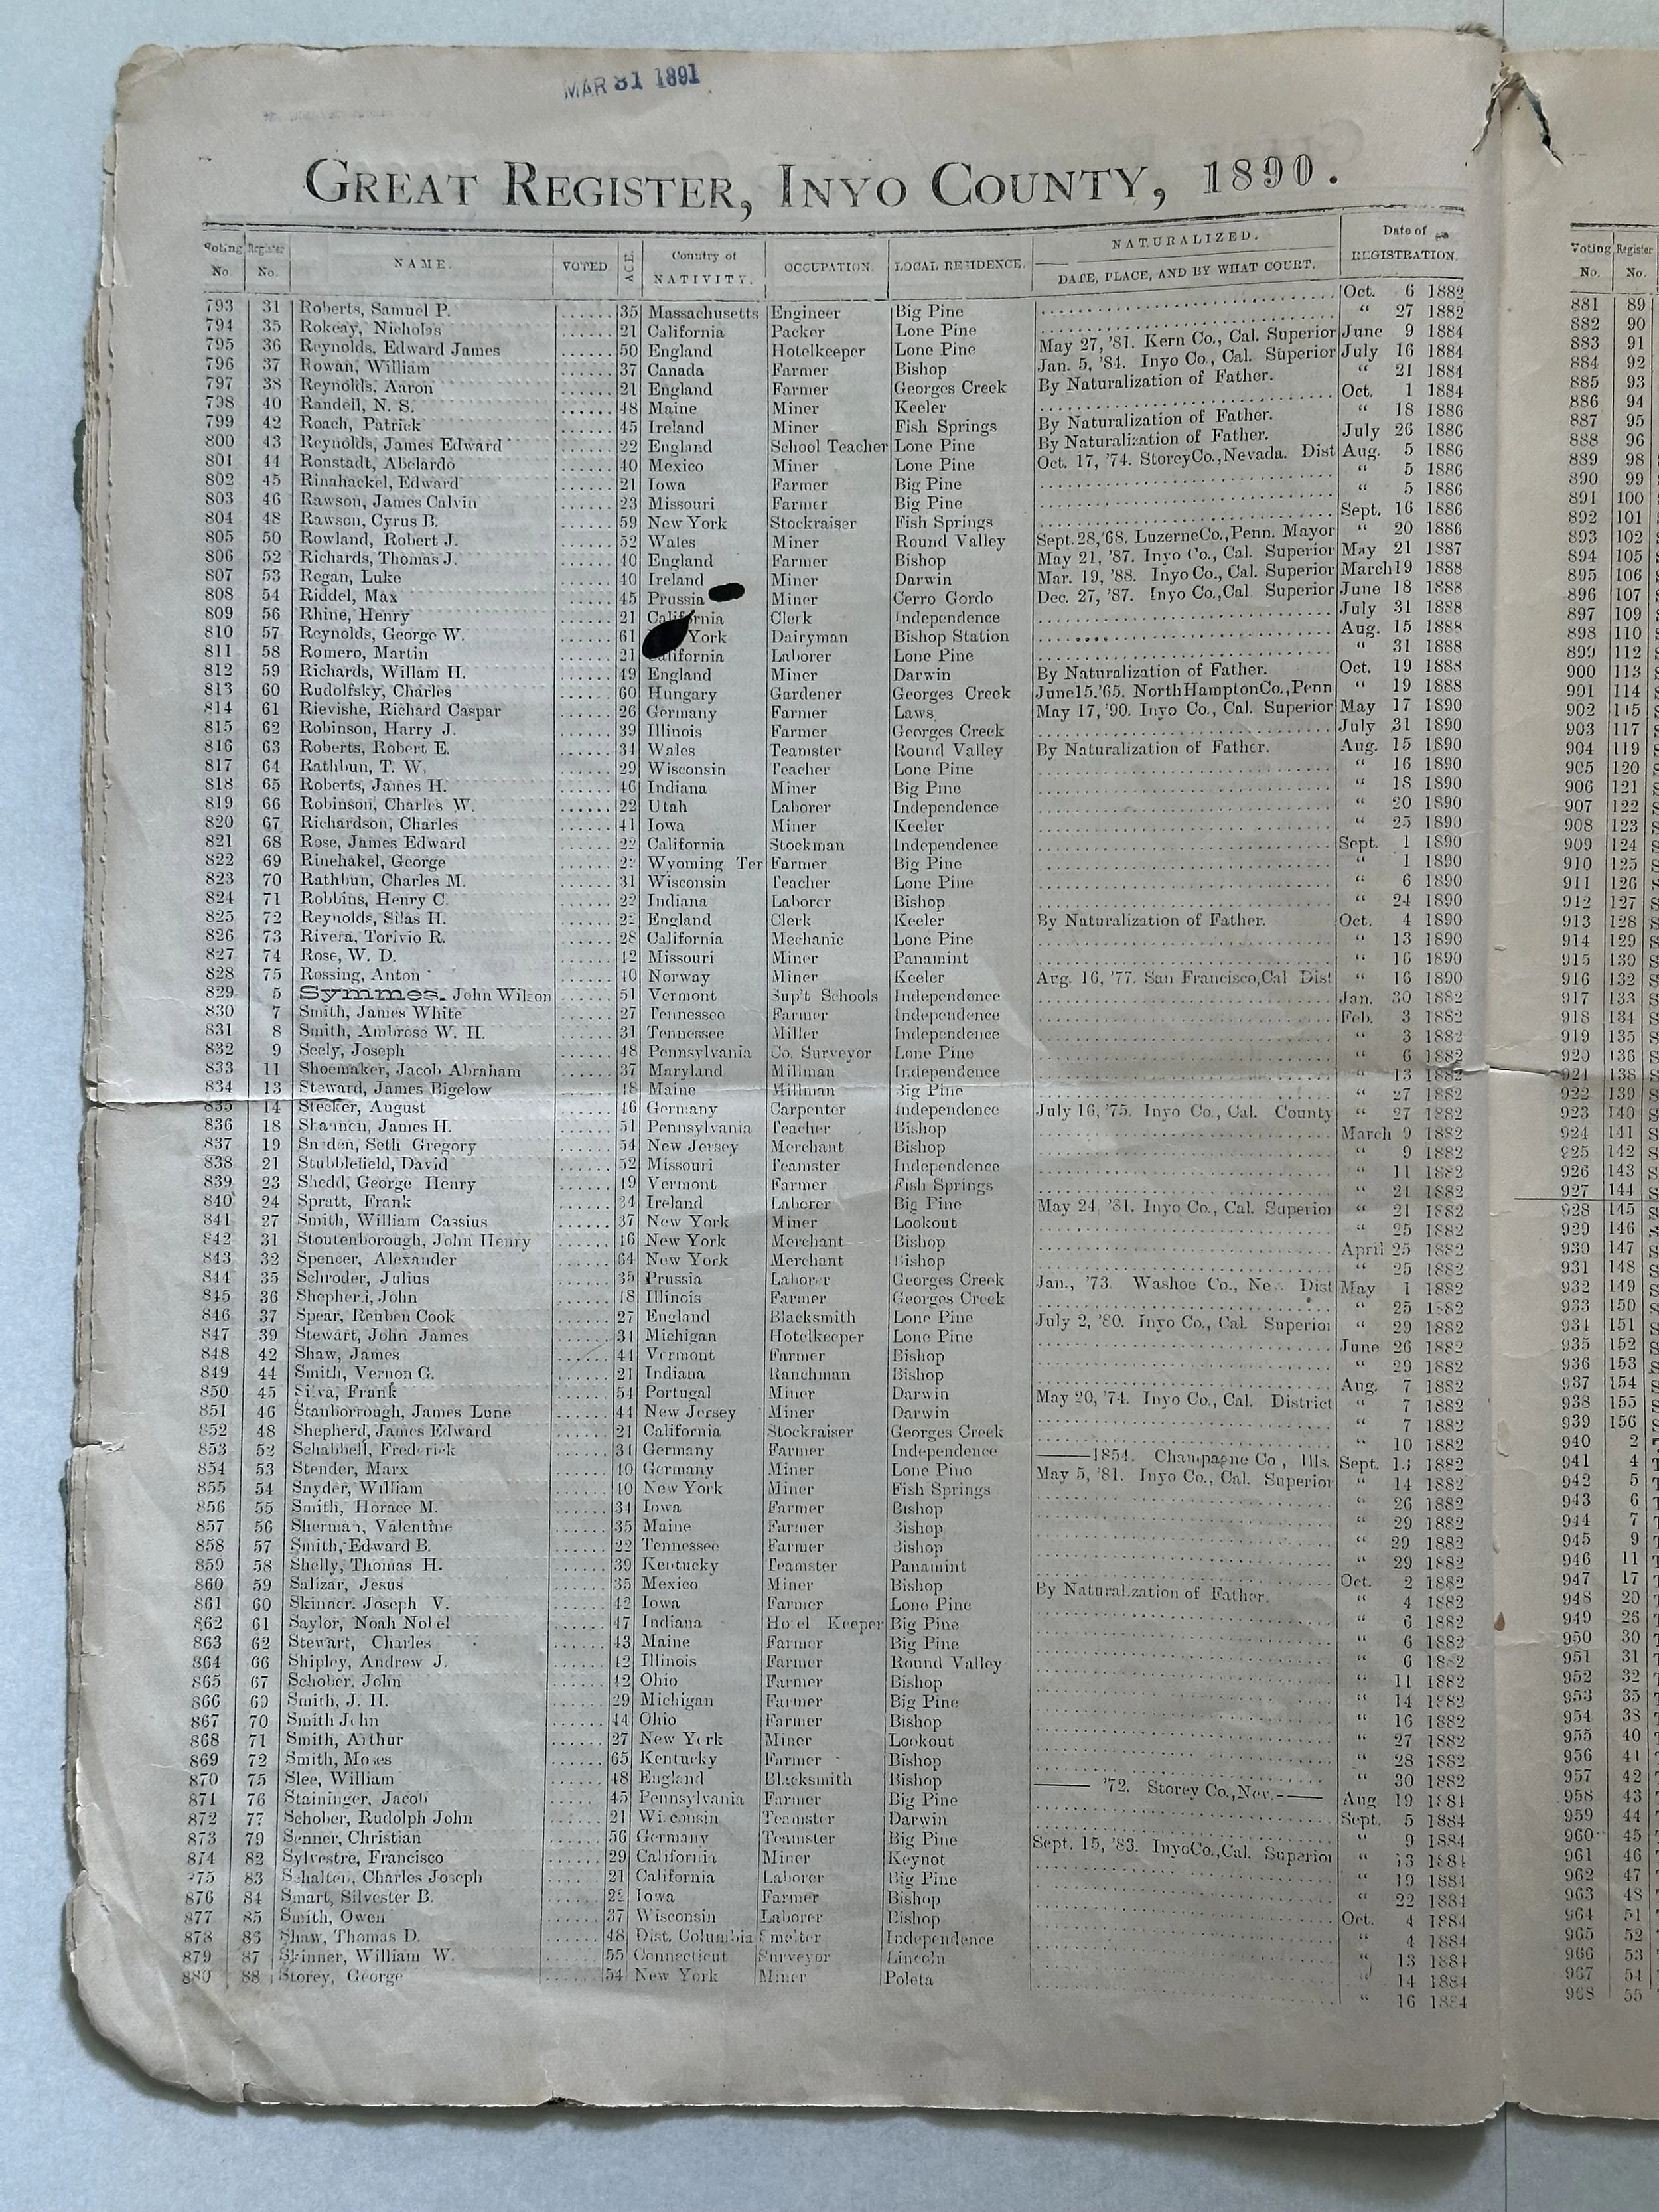 MAR 31 1891
GREAT REGISTER, INYO COUNTY, 1890.
Voting No. Register No. NAME. VOTED AGE Country of NATIVITY. OCCUPATION. LOCAL RESIDENCE. NATURALIZED. DATE, PLACE, AND BY WHAT COURT. Date of REGISTRATION.
793 31 Roberts, Samuel P. 35 Massachusetts Engineer Big Pine Oct. 6 1882
794 35 Rokeay, Nicholas 21 California Packer Lone Pine “ 27 1882
795 36 Reynolds. Edward James 50 England Hotelkeeper Lone Pine May 27, '81. Kern Co., Cal. Superior June 9 1884
796 37 Rowan, William 37 Canada Farmer Bishop Jan. 5, '84. Inyo Co., Cal. Superior July 16 1884
797 38 Reynolds. Aaron 21 England Farmer Georges Creek By Naturalization of Father. “ 21 1884
798 40 Randell, N. S. 48 Maine Miner Keeler Oct. 1 1884
799 42 Roach, Patrick 45 Ireland Miner Fish Springs By Naturalization of Father. “ 18 1886
800 43 Reynolds, James Edward 22 England School Teacher Lone Pine By Naturalization of Father. July 26 1886
801 44 Ronstadt, Abelardo 40 Mexico Miner Lone Pine Oct. 17, '74. Storey Co., Nevada. Dist Aug. 5 1886
802 45 Rinahackel, Edward 21 Iowa Farmer Big Pine “ 5 1886
803 46 Rawson, James Calvin 23 Missouri Farmer Big Pine “ 5 1886
804 48 Rawson, Cyrus B. 59 New York Stockraiser Fish Springs Sept. 16 1886
805 50 Rowland, Robert J. 52 Wales Miner Round Valley Sept. 28, '68. Luzerne Co., Penn. Mayor “ 20 1886
806 52 Richards, Thomas J. 40 England Farmer Bishop May 21, '87. Inyo Co., Cal. Superior May 21 1887
807 53 Regan, Luke 40 Ireland Miner Darwin Mar. 19, '88. Inyo Co., Cal. Superior March 19 1888
808 54 Riddel, Max 45 Prussia Miner Cerro Gordo Dec. 27, '87. Inyo Co., Cal. Superior June 18 1888
809 56 Rhine, Henry 21 California Clerk Independence July 31 1888
810 57 Reynolds, George W. 61 York Dairyman Bishop Station Aug. 15 1888
811 58 Romero, Martin 21 California Laborer Lone Pine “ 31 1888
812 59 Richards, Willam H. 49 England Miner Darwin By Naturalization of Father. Oct. 19 1888
813 60 Rudolfsky, Charles 60 Hungary Gardener Georges Creek June 15. '65. North Hampton Co., Penn “ 19 1888
814 61 Rievishe, Richard Caspar 26 Germany Farmer Laws May 17, '90. Inyo Co., Cal. Superior May 17 1890
815 62 Robinson, Harry J. 39 Illinois Farmer Georges Creek July 31 1890
816 63 Roberts, Robert E. 34 Wales Teamster Round Valley By Naturalization of Father. Aug. 15 1890
817 64 Rathbun, T. W. 29 Wisconsin Teacher Lone Pine “ 16 1890
818 65 Roberts, James H. 46 Indiana Miner Big Pine “ 18 1890
819 66 Robinson, Charles W. 22 Utah Laborer Independence “ 20 1890
820 67 Richardson, Charles 41 Iowa Miner Keeler “ 25 1890
821 68 Rose, James Edward 22 California Stockman Independence Sept. 1 1890
822 69 Rinehakel, George Wyoming Ter Farmer Big Pine “ 1 1890
823 70 Rathbun, Charles M. 31 Wisconsin Teacher Lone Pine “ 6 1890
824 71 Robbins, Henry C. 22 Indiana Laborer Bishop “ 24 1890
825 72 Reynolds, Silas H. England Clerk Keeler By Naturalization of Father. Oct. 4 1890
826 73 Rivera, Torivio R. 28 California Mechanic Lone Pine “ 13 1890
827 74 Rose, W. D. 42 Missouri Miner Panamint “ 16 1890
828 75 Rossing, Anton 40 Norway Miner Keeler Aug. 16, '77. San Francisco, Cal Dist “ 16 1890
829 5 Symmes. John Wilson 51 Vermont Sup't Schools Independence Jan. 30 1882
830 7 Smith, James White 27 Tennessee Farmer Independence Feb. 3 1882
831 8 Smith, Ambrose W. H. 31 Tennessee Miller Independence “ 3 1882
832 9 Seely, Joseph 48 Pennsylvania Co. Surveyor Lone Pine “ 6 1882
833 11 Shoemaker, Jacob Abraham 37 Maryland Millman Independence “ 13 1882
834 13 Steward, James Bigelow 48 Maine Millman Big Pine “ 27 1882
835 14 Stecker, August 46 Germany Carpenter Independence July 16, '75. Inyo Co., Cal. County “ 27 1882
836 18 Shannon, James H. 51 Pennsylvania Teacher Bishop March 9 1882
837 19 Sneden, Seth Gregory 54 New Jersey Merchant Bishop “ 9 1882
838 21 Stubblefield, David 52 Missouri Teamster Independence “ 11 1882
839 23 Shedd, George Henry 49 Vermont Farmer Fish Springs “ 21 1882
840 24 Spratt, Frank 34 Ireland Laborer Big Pine May 24, '81. Inyo Co., Cal. Superior “ 21 1882
841 27 Smith, William Cassius 37 New York Miner Lookout “ 25 1882
842 31 Stoutenborough, John Henry 46 New York Merchant Bishop April 25 1882
843 32 Spencer, Alexander 64 New York Merchant Bishop “ 25 1882
844 35 Schroder, Julius 35 Prussia Laborer Georges Creek Jan., '73. Washoe Co., Nev. Dist May 1 1882
845 36 Shepherd, John 48 Illinois Farmer Georges Creek “ 25 1882
846 37 Spear, Reuben Cook 27 England Blacksmith Lone Pine July 2, '80. Inyo Co., Cal. Superior “ 29 1882
847 39 Stewart, John James 34 Michigan Hotelkeeper Lone Pine June 26 1882
848 42 Shaw, James 44 Vermont Farmer Bishop “ 29 1882
849 44 Smith, Vernon G. 21 Indiana Ranchman Bishop Aug. 7 1882
850 45 Silva, Frank 54 Portugal Miner Darwin May 20, '74. Inyo Co., Cal. District “ 7 1882
851 46 Stanborrough, James Lune 44 New Jersey Miner Darwin “ 7 1882
852 48 Shepherd, James Edward 21 California Stockraiser Georges Creek “ 10 1882
853 52 Schabbell, Frederick 34 Germany Farmer Independence ——1854. Champagne Co, Ills. Sept. 13 1882
854 53 Stender, Marx 40 Germany Miner Lone Pine May 5, '81. Inyo Co., Cal. Superior “ 14 1882
855 54 Snyder, William 40 New York Miner Fish Springs “ 26 1882
856 55 Smith, Horace M. 34 Iowa Farmer Bishop “ 29 1882
857 56 Sherman, Valentine 35 Maine Farmer Bishop “ 29 1882
858 57 Smith, Edward B. 22 Tennessee Farmer Bishop “ 29 1882
859 58 Shelly, Thomas H. 39 Kentucky Teamster Panamint Oct. 2 1882
860 59 Salizar, Jesus 35 Mexico Miner Bishop By Naturalization of Father. “ 4 1882
861 60 Skinner. Joseph V. 42 Iowa Farmer Lone Pine “ 6 1882
862 61 Saylor, Noah Nobel 47 Indiana Hotel Keeper Big Pine “ 6 1882
863 62 Stewart, Charles 43 Maine Farmer Big Pine “ 6 1882
864 66 Shipley, Andrew J. 42 Illinois Farmer Round Valley “ 11 1882
865 67 Schober. John 42 Ohio Farmer Bishop “ 14 1882
866 69 Smith, J. H. 29 Michigan Farmer Big Pine “ 16 1882
867 70 Smith John 44 Ohio Farmer Bishop “ 27 1882
868 71 Smith, Arthur 27 New York Miner Lookout “ 28 1882
869 72 Smith, Moses 65 Kentucky Farmer Bishop “ 30 1882
870 75 Slee, William 48 England Blacksmith Bishop —— '72. Storey Co., Nev.—— Aug. 19 1884
871 76 Staininger, Jacob 45 Pennsylvania Farmer Big Pine Sept. 5 1884
872 77 Schober, Rudolph John 21 Wisconsin Teamster Darwin “ 9 1884
873 79 Senner, Christian 56 Germany Teamster Big Pine Sept. 15, '83. Inyo Co., Cal. Superior “ 13 1884
874 82 Sylvestre, Francisco 29 California Miner Keynot “ 19 1884
875 83 Schalten, Charles Joseph 21 California Laborer Big Pine “ 22 1884
876 84 Smart, Silvester B. Iowa Farmer Bishop Oct. 4 1884
877 85 Smith, Owen 37 Wisconsin Laborer Bishop “ 4 1884
878 86 Shaw, Thomas D. 48 Dist. Columbia Smelter Independence “ 13 1884
879 87 Skinner, William W. 55 Connecticut Surveyor Lincoln “ 14 1884
880 88 Storey, George 54 New York Miner Poleta “ 16 1884
Voting No. Register No.
881 89
882 90
883 91
884 92
885 93
886 94
887 95
888 96
889 98
890 99
891 100
892 101
893 102
894 105
895 106
896 107
897 109
898 110
899 112
900 113
901 114
902 115
903 117
904 119
905 120
906 121
907 122
908 123
909 124
910 125
911 126
912 127
913 128
914 129
915 130
916 132
917 133
918 134
919 135
920 136
921 138
922 139
923 140
924 141
925 142
926 143
927 144
928 145
929 146
930 147
931 148
932 149
933 150
934 151
935 152
936 153
937 154
938 155
939 156
940 2
941 4
942 5
943 6
944 7
945 9
946 11
947 17
948 20
949 26
950 30
951 31
952 32
953 35
954 38
955 40
956 41
957 42
958 43
959 44
960 45
961 46
962 47
963 48
964 51
965 52
966 53
967 54
968 55